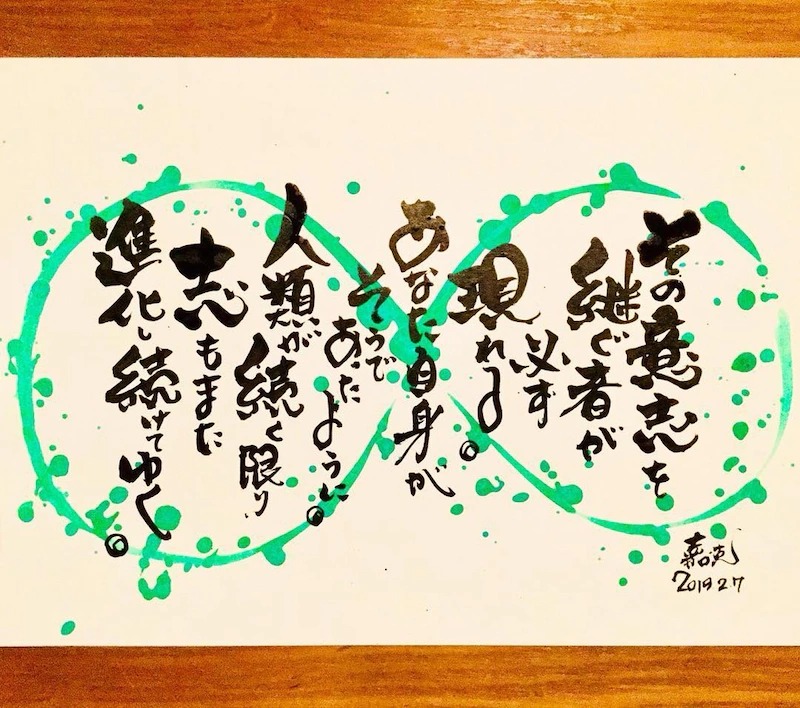 その意志を
継ぐ者が
必ず
現れる。
あなた自身が
そうで
あった
ように。
人類が
続く限り
志もまた
進化し
続けてゆく。
嘉克
2019 2.7